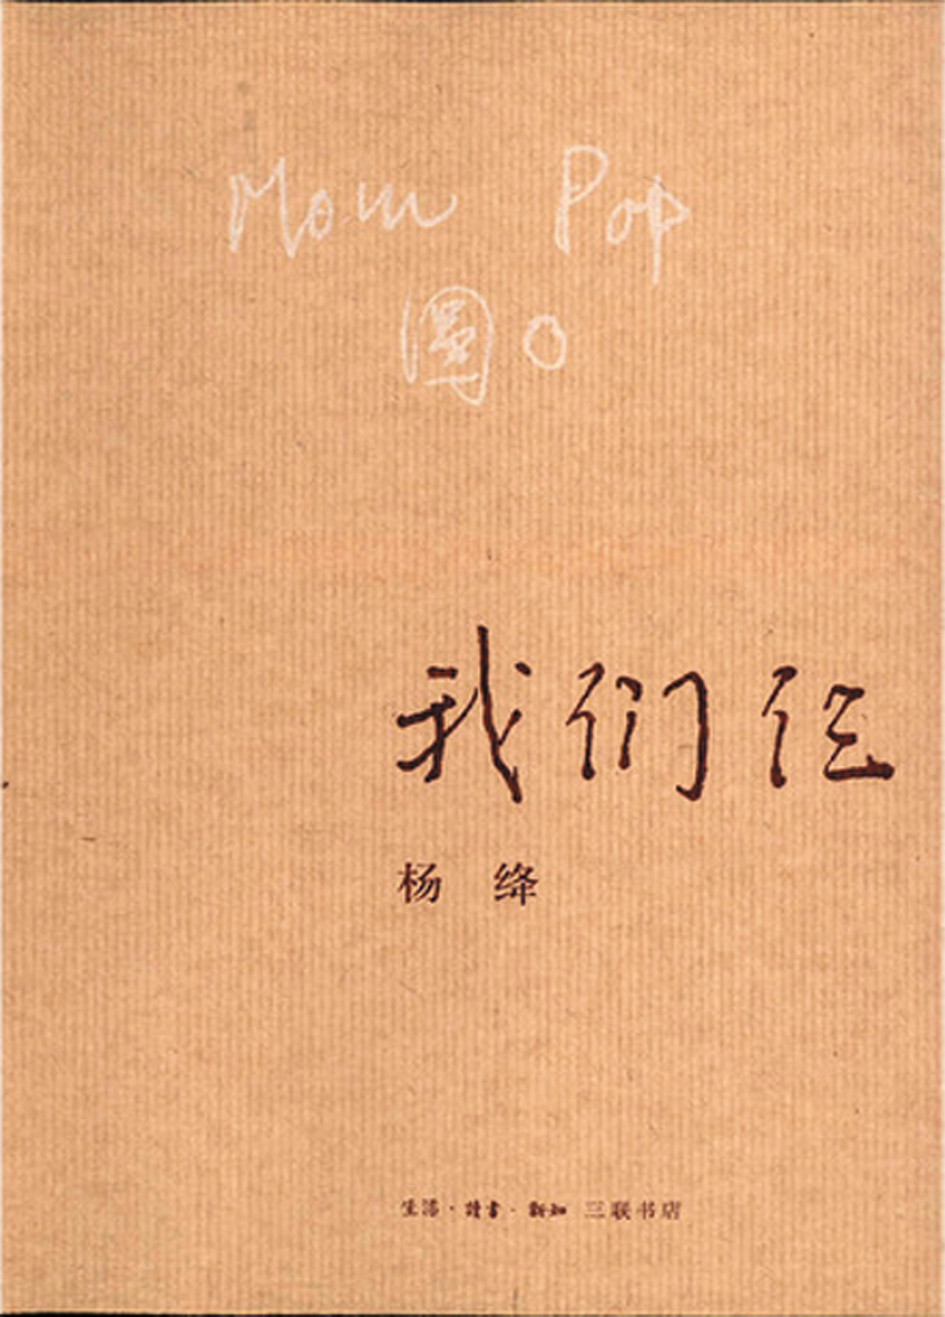 Mom Pop
圓O
我们仨
杨 绛
生活·讀書·新知 三联书店